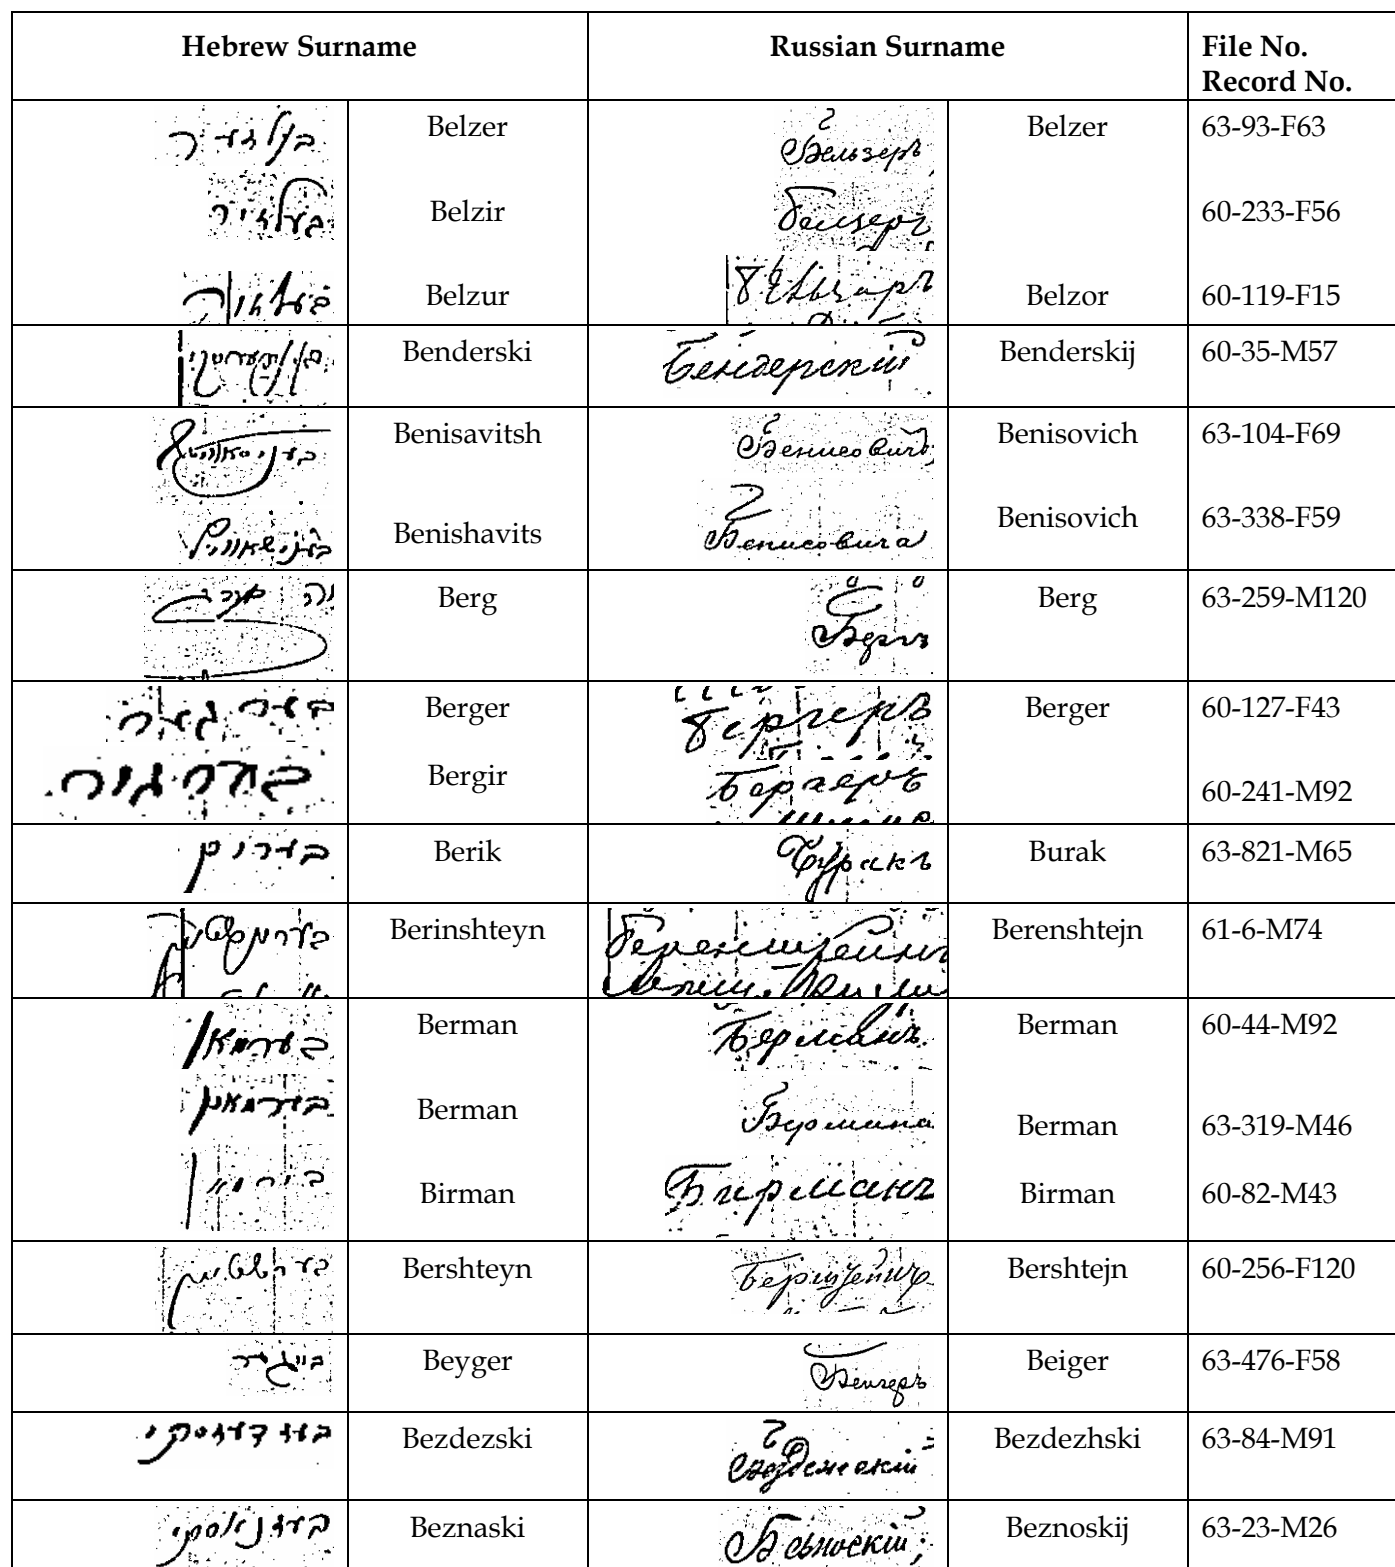 Hebrew Surname Russian Surname File No.
Record No.
בעלזער Belzer Бельзеръ Belzer 63-93-F63
בעלזיר Belzir Белзеръ 60-233-F56
בעלזור Belzur Belzor 60-119-F15
Benderski Бендерскій Benderskij 60-35-M57
Benisavitsh Бенисовичъ Benisovich 63-104-F69
Benishavits Бенисовича Benisovich 63-338-F59
בערג Berg Бергъ Berg 63-259-M120
בער גער Berger Бергеръ Berger 60-127-F43
בערגיר Bergir Бергеръ 60-241-M92
בעריק Berik Буракъ Burak 63-821-M65
בערינשטיין Berinshteyn Беренштейнъ Berenshtejn 61-6-M74
בערמאן Berman Берманъ Berman 60-44-M92
בערמאן Berman Бермана Berman 63-319-M46
בירמאן Birman Бирманъ Birman 60-82-M43
בערשטיין Bershteyn Берштейнъ Bershtejn 60-256-F120
בייגער Beyger Бейгеръ Beiger 63-476-F58
בעזדעזסקי Bezdezski Bezdezhski 63-84-M91
בעזנאסקי Beznaski Безноскій Beznoskij 63-23-M26